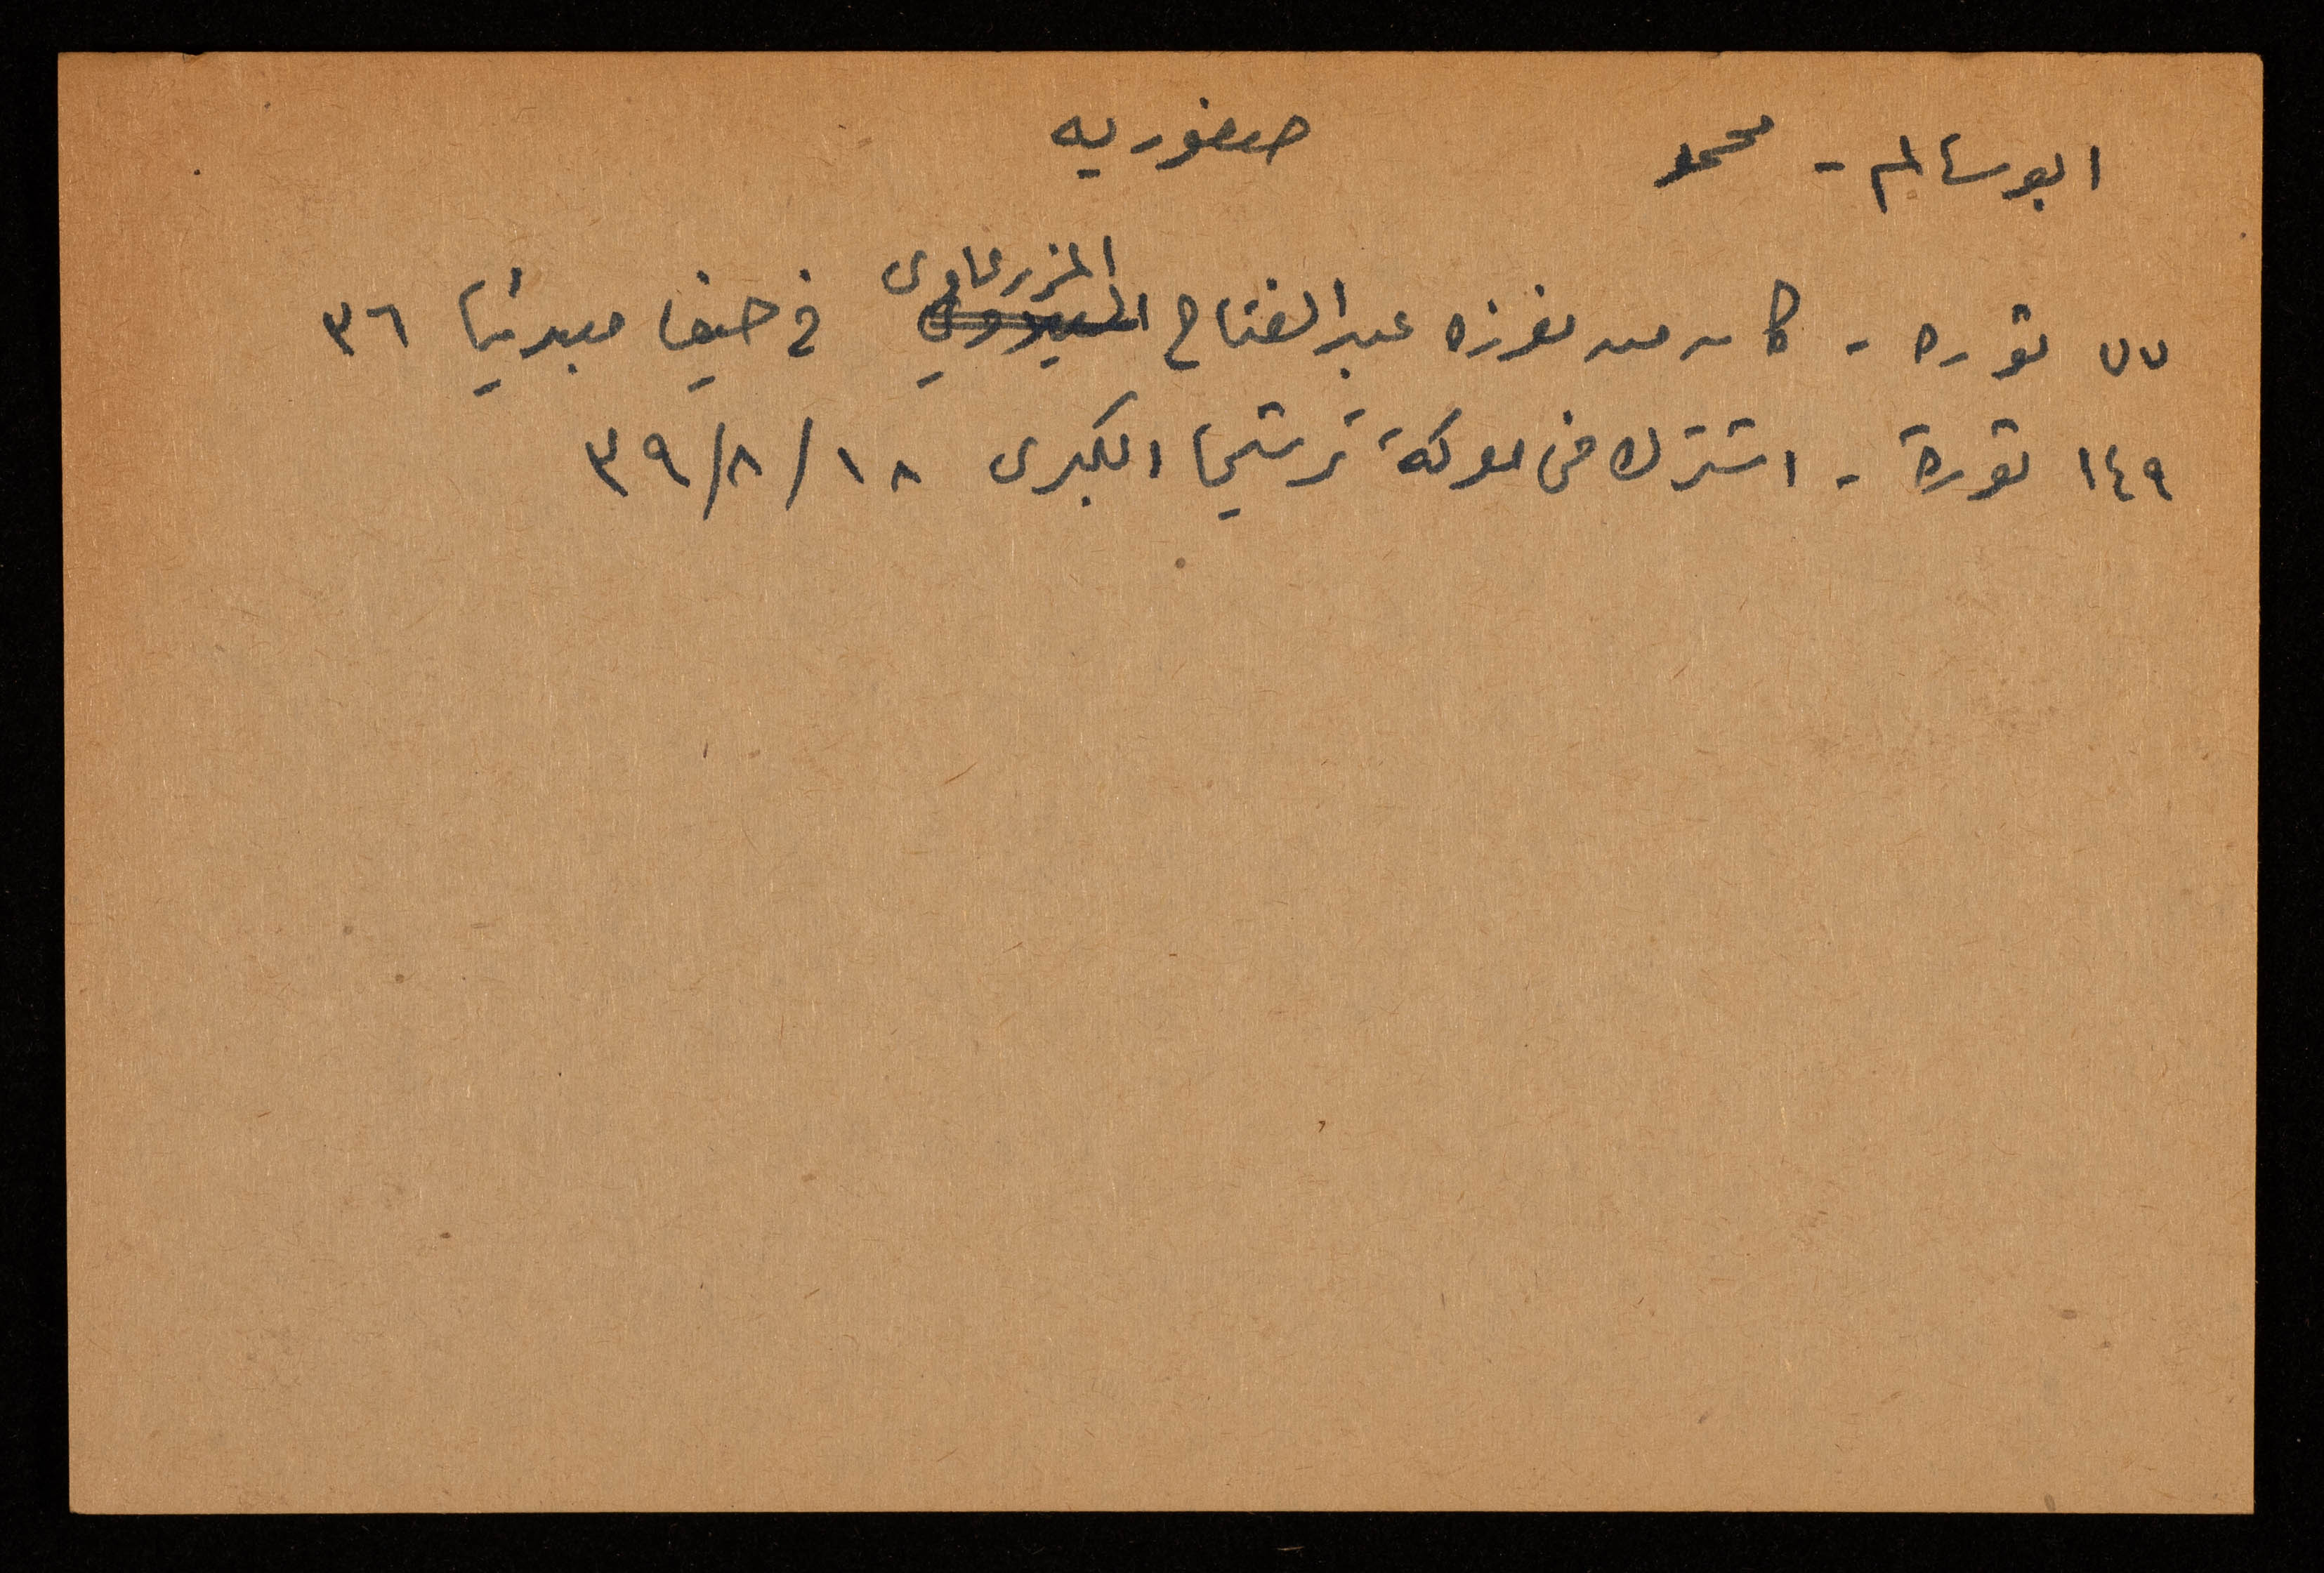 ابو سالم - محمد صفوريه
٧٧ ثوره - كان من مفرزه عبد الفتاح المزرعاوي في حيفا مبدئيا ٣٦
١٤٩ ثورة - اشترك في معركة ترشيحا الكبرى ١٨/٨/٣٩